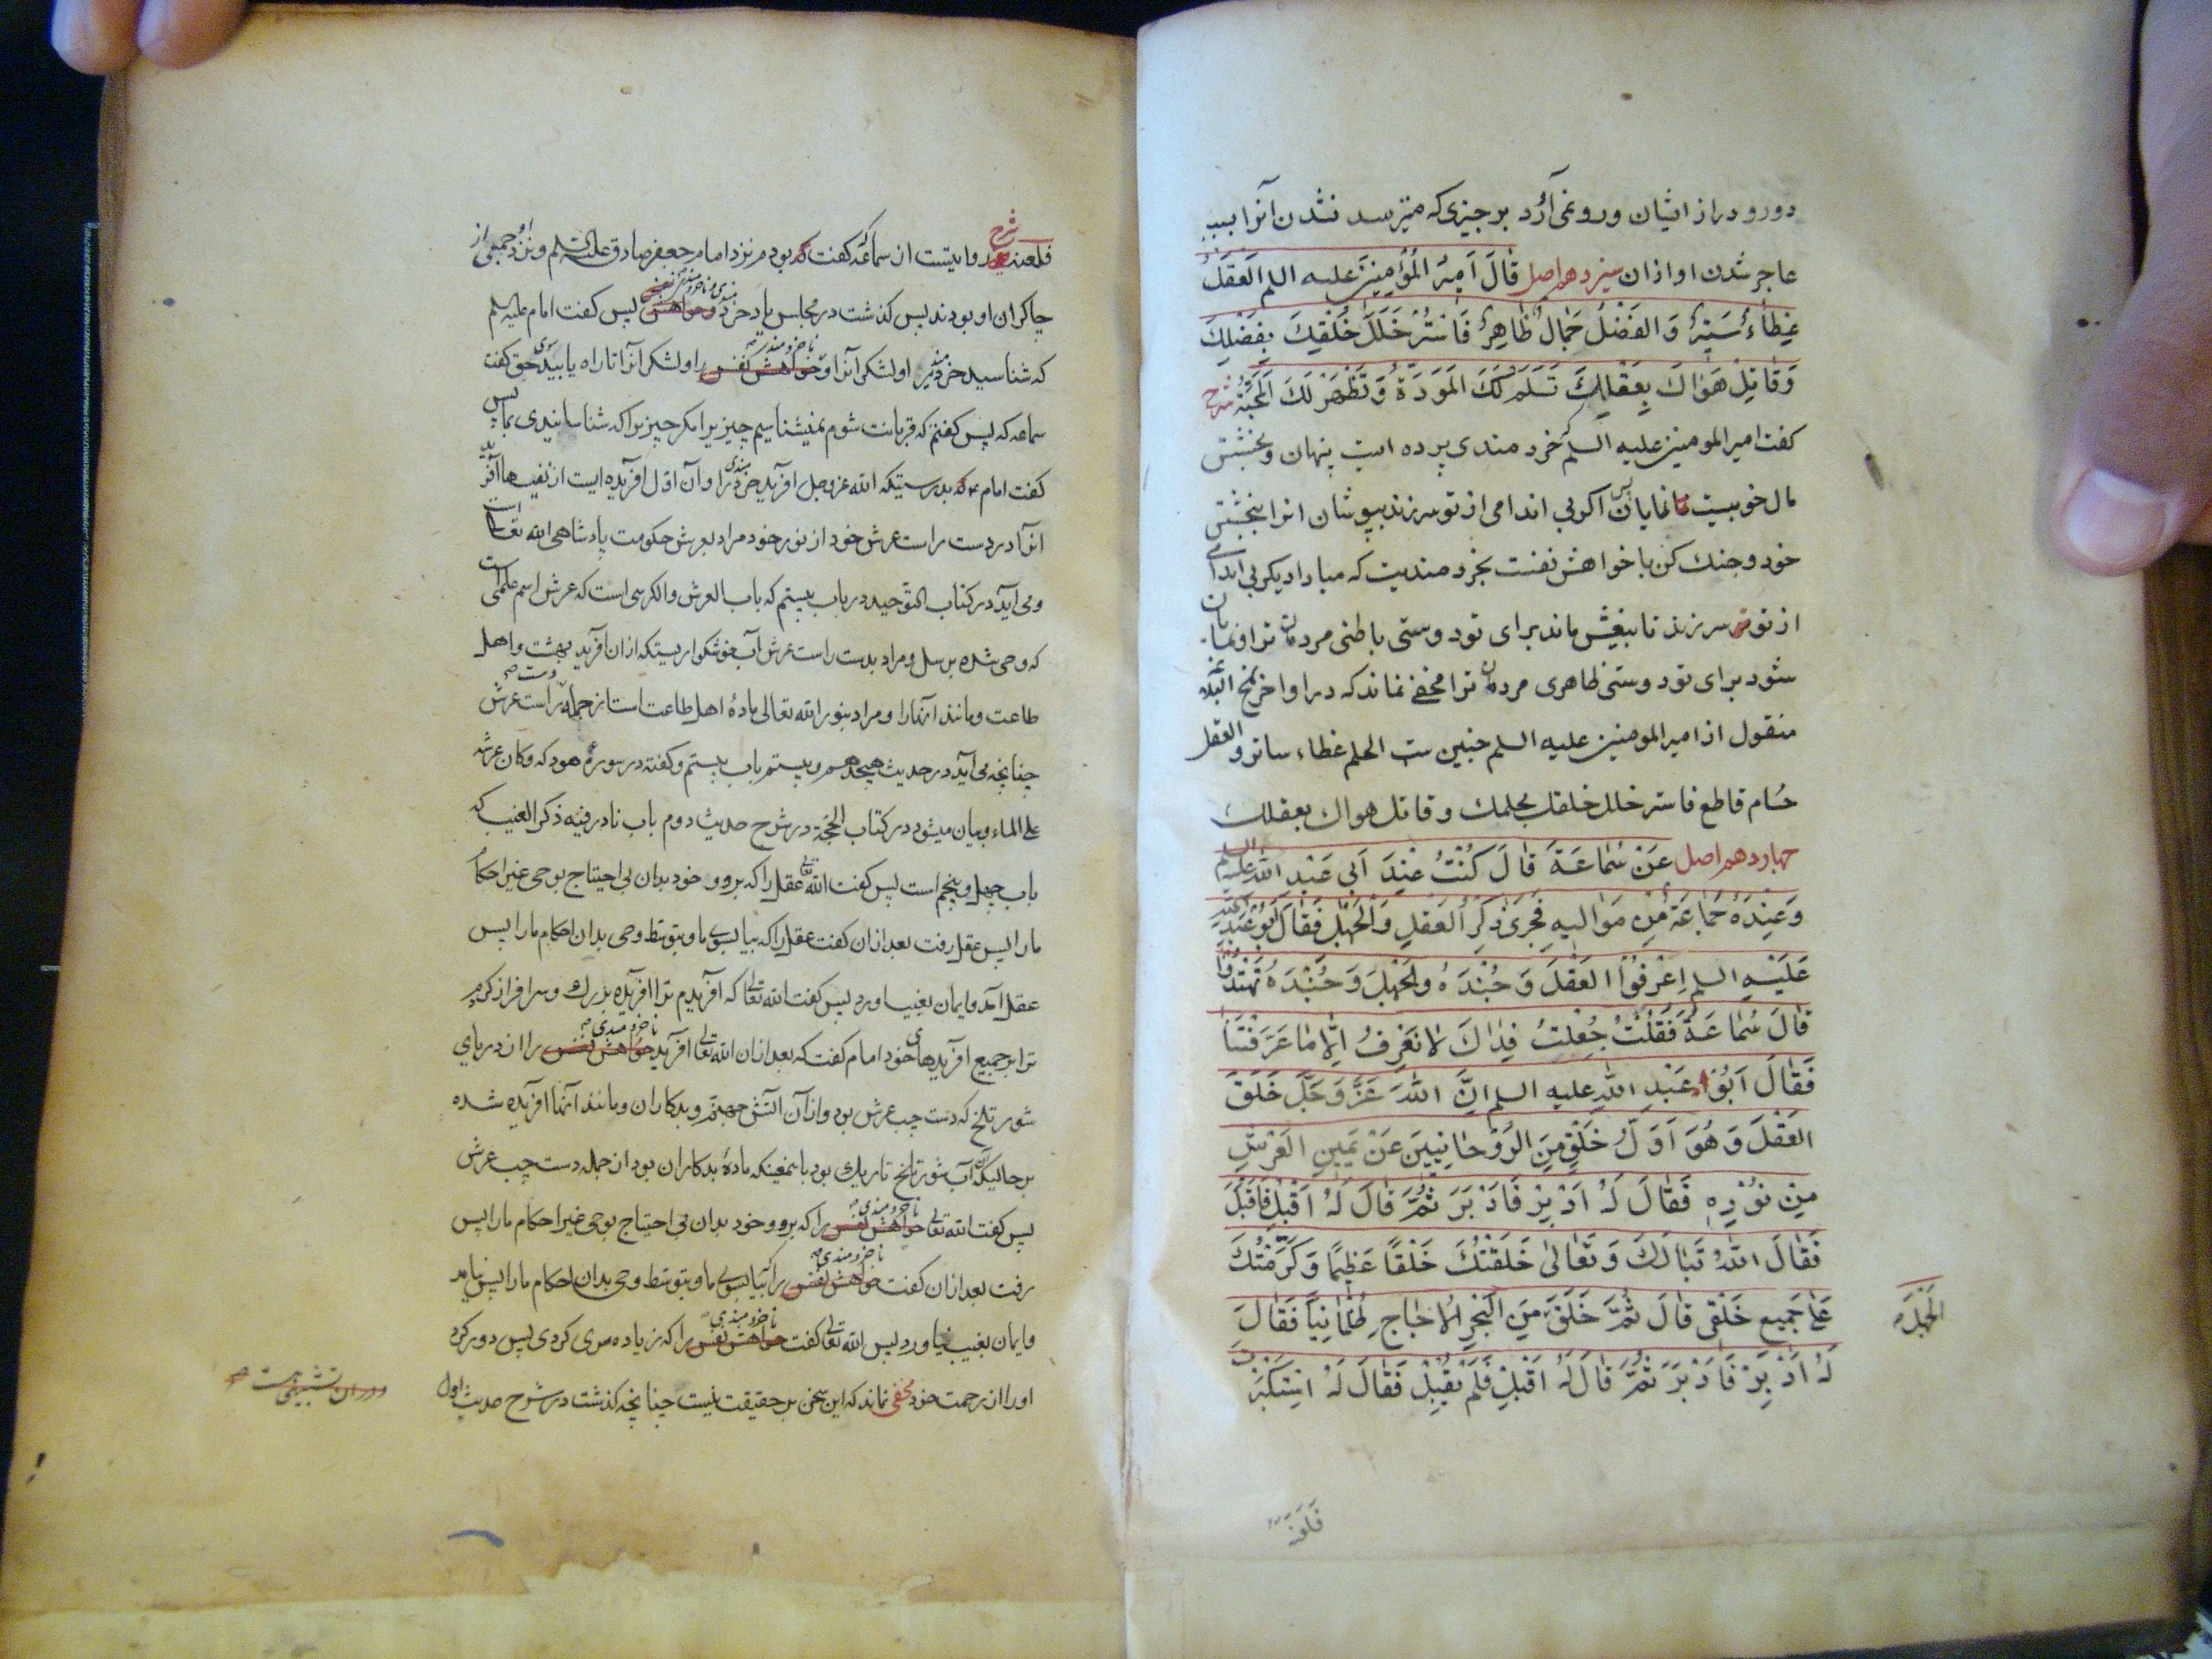 دور و دراز ایشان و رو نمی آرد بر چیزی که میترسد نشدن آنرا بسبب
عاجز شدن او از ان سیزدهم اصل قَالَ اَمِیرُ الْمُؤْمِنِینَ علیه السلم اَلْعَقْلُ
غِطَاءٌ سَتِیرٌ وَ الفَضْلُ جَمَالٌ ظَاهِرٌ فَاسْتُرْ خَلَلَ خُلْقِکَ بِفَضْلِکَ
وَ قَاتِلْ هَوَاکَ بِعَقْلِکَ تَسْلَمْ لَکَ الْمَوَدَّةُ وَ تَظْهَرْ لَکَ الْمَحَبَّةُ شرح
کفت امیر المومنین علیه السلم خرد مندی پرده ایست پنهان و بخشش
مال خوبیست نمایان پس اکر بی اندامی از تو سر زند بپوشان انرا ببخشش
خود و جنک کن با خواهش نفست بخرد مندیت که مبادا دیکر بی اندامی
از تو سر زند تا بیغش ماند برای تو دوستی باطنی مردمان ترا و نمایان
شود برای تو دوستی ظاهری مردمان ترا مخفی نماند که در اواخر نهج البلاغه
منقول از امیر المومنین علیه السلم چنین ست الحلم غطاء ساتر و العقل
حسام قاطع فاستر خلل خلقک بحلمک و قاتل هواک بعقلک
چهاردهم اصل عَنْ سُمَاعَةَ قَالَ کُنْتُ عِنْدَ اَبی عَبْدِ اللّٰه علیه السلم
وَ عِنْدَهُ جَمَاعَةٌ مِنْ مَوَالیهِ فَجَرَیٰ ذِکْرُ العَقْلِ وَالْجَهْلِ فَقَالَ اَبُو عَبْدِ اللّٰه
عَلَیْهِ السلم اِعْرِفُوا العَقْلَ وَ جُنْدَهُ وَ الْجَهْلَ وَ جُنْدَهُ تَهْتَدُوا
قَالَ سُمَاعَةُ فَقُلْتُ جُعِلْتُ فِدَاکَ لَا نَعْرِفُ اِلَّا مَا عَرَّفْتَنَا
فَقَالَ اَبُو عَبْدِ اللّٰهِ علیه السلم اِنَّ اللّٰهَ عَزَّ وَ جَلَّ خَلَقَ
العَقْلَ وَ هُوَ اَوَّلُ خَلْقٍ مِنَ الرُّوْحَانِیِّینَ عَنْ یَمِینِ العَرْشِ
مِنْ نُوْرِهِ فَقَالَ لَهُ اَدْبِرْ فَاَدْبَرَ ثُمَّ قَالَ لَهُ اَقْبِلْ فَاَقْبَلَ
فَقَالَ اللّٰهُ تَبَارَکَ وَ تَعَالیٰ خَلَقْتُکَ خَلْقًا عَظِیمًا وَ کَرَّمْتُکَ
عَلیٰ جَمِیعِ خَلْقی قَالَ ثُمَّ خَلَقَ مِنَ الْبَحْرِ الْاُجَاجِ ظُلْمَانِیًّا فَقَالَ
الْجَهْلَ
لَهُ اَدْبِرْ فَاَدْبَرَ ثُمَّ قَالَ لَهُ اَقْبِلْ فَلَمْ یُقْبِلْ فَقَالَ لَهُ اسْتَکْبَرْتَ
فَلَعَنَهُ
شرح
فلعنه روایتست از سماعه کفت که بودم نزد امام جعفر صادق علیه السلم و نزد او جمعی از
چاکران او بودند پس کذشت در مجلس یاد خردمندی و ناخردمندی پس کفت امام علیه السلم
که شناسید خردمندی را و لشکر آنرا و ناخردمندی را و لشکر آنرا تا راه یابید سوی حق کفت
سماعه که پس کفتم که قربانت شوم نمیشناسیم چیزیرا مکر چیزیرا که شناسانیدی بما پس
کفت امام ع که بدرستیکه الله عز و جل آفرید خردمندی را و آن اول افریده ایست از نفیسها آفرید
انرا در دست راست عرش خود از نور خود مراد بعرش حکومت پادشاهی الله تعالی است
و می آید در کتاب التوحید در باب بیستم که باب العرش و الکرسی است که عرش اسم علمی است
که وحی شده برسل و مراد بدست راست عرش آب خوشکواریستکه ازان آفرید بهشت و اهل
طاعت و مانند آنها را و مراد بنور الله تعالی مادهٔ اهل طاعت است از جمله دست راست عرش
چنانچه می آید در حدیث هیجدهم و بیستم باب بیستم و کفته در سورهٔ هود که و کان عرشه
علی الماء و بیان میشود در کتاب الحجة در شرح حدیث دوم باب نادر فیه ذکر الغیب که
باب چهل و پنجم است پس کفت الله تعالی عقل را که برو و خود بدان بی احتیاج بوحی غیر احکام
ما را پس عقل رفت بعد ازان کفت عقل را که بیا بسوی ما و بتوسط وحی بدان احکام ما را پس
عقل آمد و ایمان بغیب اورد پس کفت الله تعالی که آفریدم ترا افریده بزرک و سرافراز کردم
ترا بر جمیع افریدهای خود امام کفت که بعد ازان الله تعالی آفرید ناخردمندی را از دریای
شور تلخ که دست چپ عرش بود و ازان آتش جهنم و بدکاران و مانند آنها آفریده شده
بر حالیکه آن آب شور تلخ تاریک بود باینمعنیکه مادهٔ بدکاران بود از جمله دست چپ عرش
پس کفت الله تعالی ناخردمندی را که برو و خود بدان بی احتیاج بوحی غیر احکام ما را پس
رفت بعد ازان کفت ناخردمندی را که بیا بسوی ما و بتوسط وحی بدان احکام ما را پس نیامد
و ایمان بغیب نیاورد پس الله تعالی کفت ناخردمندی را که زیاده سری کردی پس دور کرد
او را از رحمت خود مخفی نماند که این سخن بر حقیقت نیست چنانچه کذشت در شرح حدیث اول